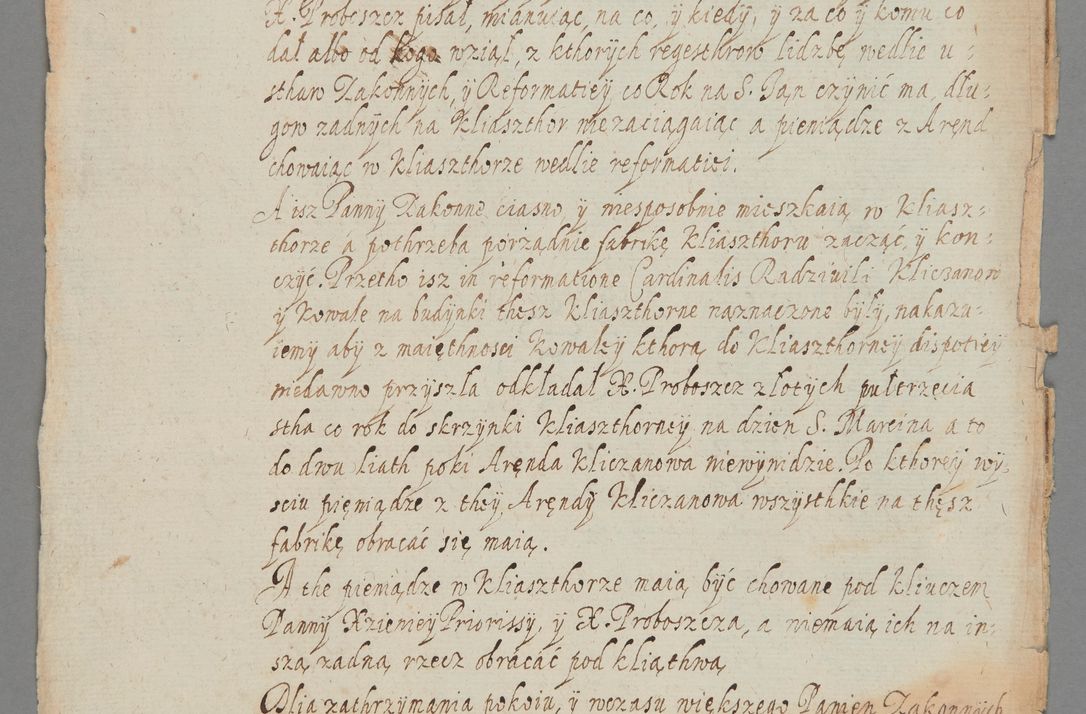 X. Proboszcz pisał, mianuiąc, na co, ÿ kiedÿ, ÿ za co ÿ komu co
dał albo od kogo wziął, z kthorÿch regesthrow lidzbę wedlie u-
sthaw Zakonnÿch, ÿ Reformatieÿ co Rok na S. Jan czynić ma, dłu-
gow zadnÿch na Kliaszthor niezaciągaiąc a pieniądze z Arend
chowaiąc w Kliaszthorze wedlie reformatiei.
A isz Pannÿ Zakonne ciasno, ÿ niesposobnie mieszkaią w Kliasz-
thorze á pothrzeba porządnie fabrikę Kliaszthoru zacząć, ÿ kon-
czÿć. Przetho isz in reformatione Cardinalis Radziuili Kliczanow
ÿ Kowale na budÿnki thesz Kliaszthorne naznaczone bÿłÿ, nakazu-
iemy abÿ z maięthnosci Kowalÿ kthora do Kliaszthorneÿ dispotieÿ
niedawno przÿszla odkładał X. Proboszcz złotÿch pułtrzecia
stha co rok do skrzÿnki Kliaszthorneÿ na dzien S. Marcina a to
do dwu liath poki Aręnda Kliczanowa niewÿnidzie. Po kthoreÿ wÿ-
sciu pieniądze z theÿ Aręndÿ Kliczanowa wszÿsthkie na thesz
fabrikę obracać się maią.
A the pieniądze w Kliaszthorze maią bÿć chowane pod kliuczem
Pannÿ Xzienieÿ Priorissÿ, ÿ X. Proboszcza, a niemaią ich na in-
szą zadną rzecz obracać pod kliąthwą
Dlia zathrzÿmania pokoiu, ÿ wczasu większego Panien Zakonnÿch